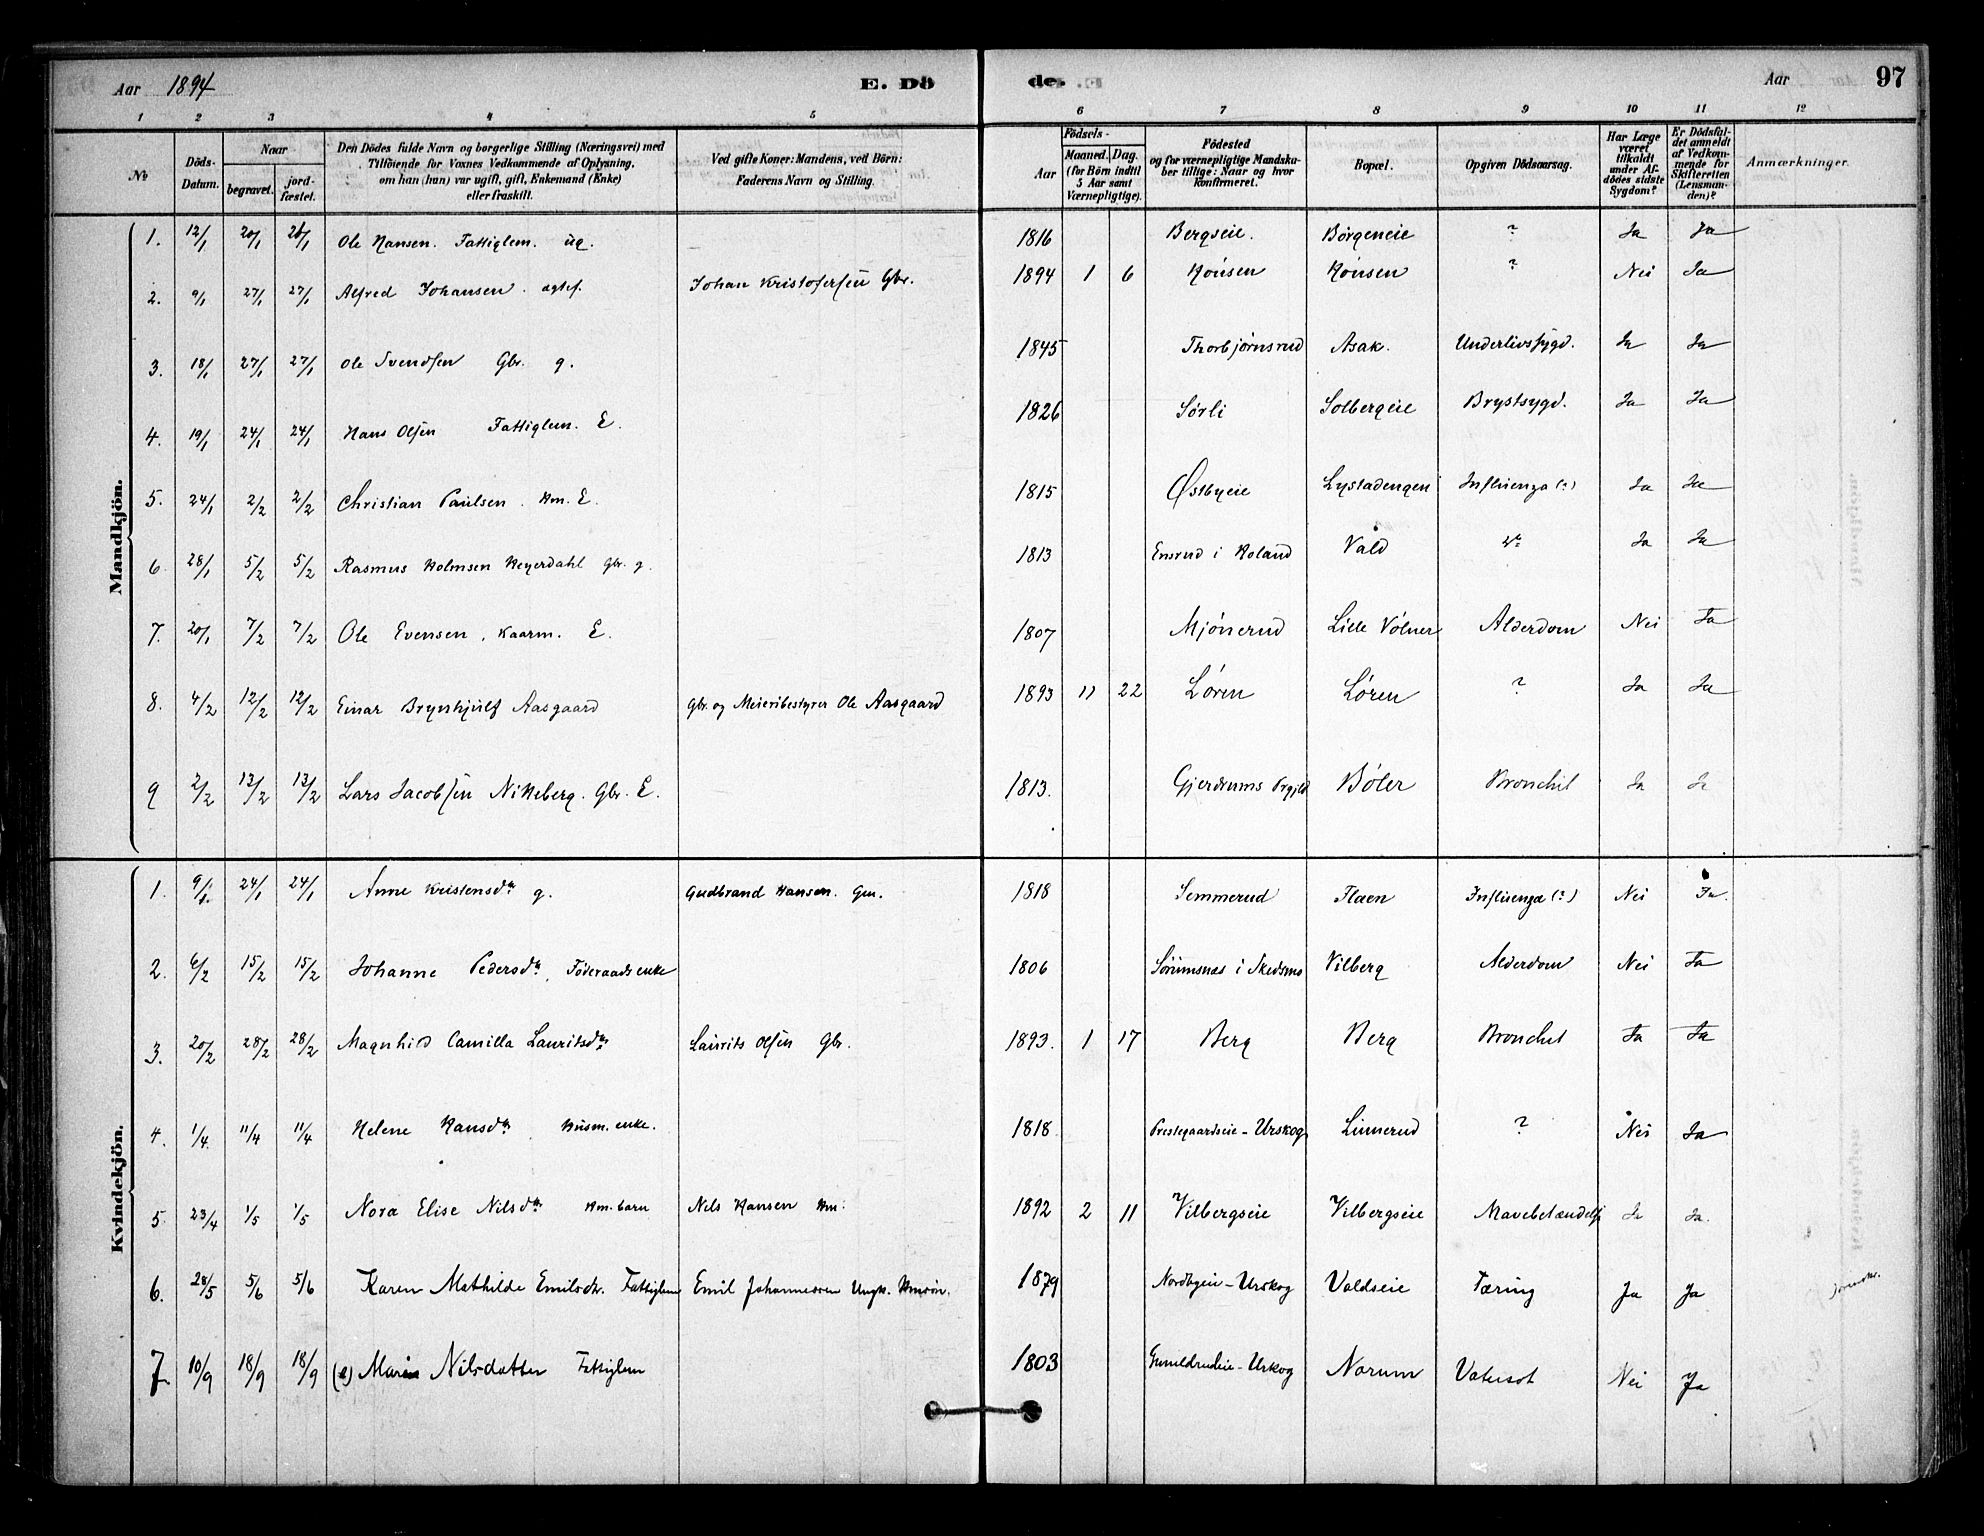 Aar 1894 E. Dö de. Aar 97
1 2 3 4 5 6 7 8 9 10 11 12
No
Döds-Datum.
Naar
begravet.
jordfæstet.
Den Dödes fulde Navn og borgerlige Stilling (Næringsvei) med
Tilföiende for Voxnes Vedkommende af Oplysning,
om han (hun) var ugift, gift, Enkemand (Enke)
eller fraskilt.
Ved gifte Koner: Mandens, ved Börn:
Faderens Navn og Stilling.
Födsels-
Aar
Maaned. Dag.
(for Börn indtil 5 Aar samt Værnepligtige).
Födested
og for værnepligtige Mandskaber tillige: Naar og hvor konfirmeret.
Bopæl.
Opgiven Dödsaarsag.
Har Læge været tilkaldt under Afdödes sidste Sygdom?
Er Dödsfaldet anmeldt af Vedkommende for Skifteretten (Lensmanden)?
Anmærkninger.
Mandkjön.
1. 12/1 20/1 20/1 Ole Hansen. Fattiglem. ug. 1816 Bergseie. Börgeneie ? Ja Ja
2. 9/1 27/1 27/1 Alfred Johansen. ægtef. Johan Kristofersen Gbr. 1894 1 6 Kónsen Kónsen ? Nei Ja
3. 18/1 27/1 27/1 Ole Svendsen Gbr. g. 1845 Thorbjörnsrud Asak. Underlivssygd. Ja Ja
4. 19/1 24/1 24/1 Hans Olsen Fattiglem. E. 1826 Sörli Solbergeie Brystsygd. Ja Ja
5. 24/1 2/2 2/2 Christian Paulsen. Hm. E. 1815 Østbyeie Lystadengen Influenza (?) Ja Ja
6. 28/1 5/2 5/2 Rasmus Holmsen Heyerdahl Gbr. g. 1813 Ensrud i Holand Vald Ja Ja
7. 20/1 7/2 7/2 Ole Evensen, Kaarm. E. 1807 Mjönerud Lille Vólner Alderdom Nei Ja
8. 4/2 12/2 12/2 Einar Brynhjulf Aasgaard Gbr. og Meieribestyrer Ole Aasgaard 1893 11 22 Lören Lören ? Ja Ja
9 2/2 13/2 13/2 Lars Jacobsen Nikeberg. Gbr. E. 1813. Gjerdrums Prgjld Böler Bronchit Ja Ja
Kvindekjön.
1. 9/1. 24/1 24/1 Anne Kristensdtr g. Gudbrand Hansen. Gm. 1818 Semmerud Flaen Influenza (?) Nei Ja.
2. 6/2 15/2 15/2 Johanne Pedersdtr, Föderaadsenke 1806 Sörumsnæs i Skedsmo Vilberg Alderdom Nei Ja
3. 20/2 28/2 28/2 Magnhild Camilla Lauritsdtr Laurits Olsen Gbr. 1893. 1 17 Berg Berg Bronchit Ja Ja
4. 1/4. 11/4 11/4 Helene Hansdtr. Husm. enke. 1818. Prestegaardseie - Urskog Linnerud ? Nei Ja
5. 23/4 1/5 1/5 Nora Elise Nilsdtr Hm. barn Nils Hansen Hm: 1892 2 11 Vilbergseie Vilbergseie Mavebetændelse Ja Ja.
6. 28/5 5/6 5/6 Karen Mathilde Emilsdr. Fattiglem Emil Johannessen Ungk. Hmsön. 1879 Nordbyeie - Urskog Valdseie Tæring Ja Ja
7 10/9 18/9 18/9 (e) Marie Nilsdatter Fattiglem 1803 - Urskog Norum Vatersot Nei Ja